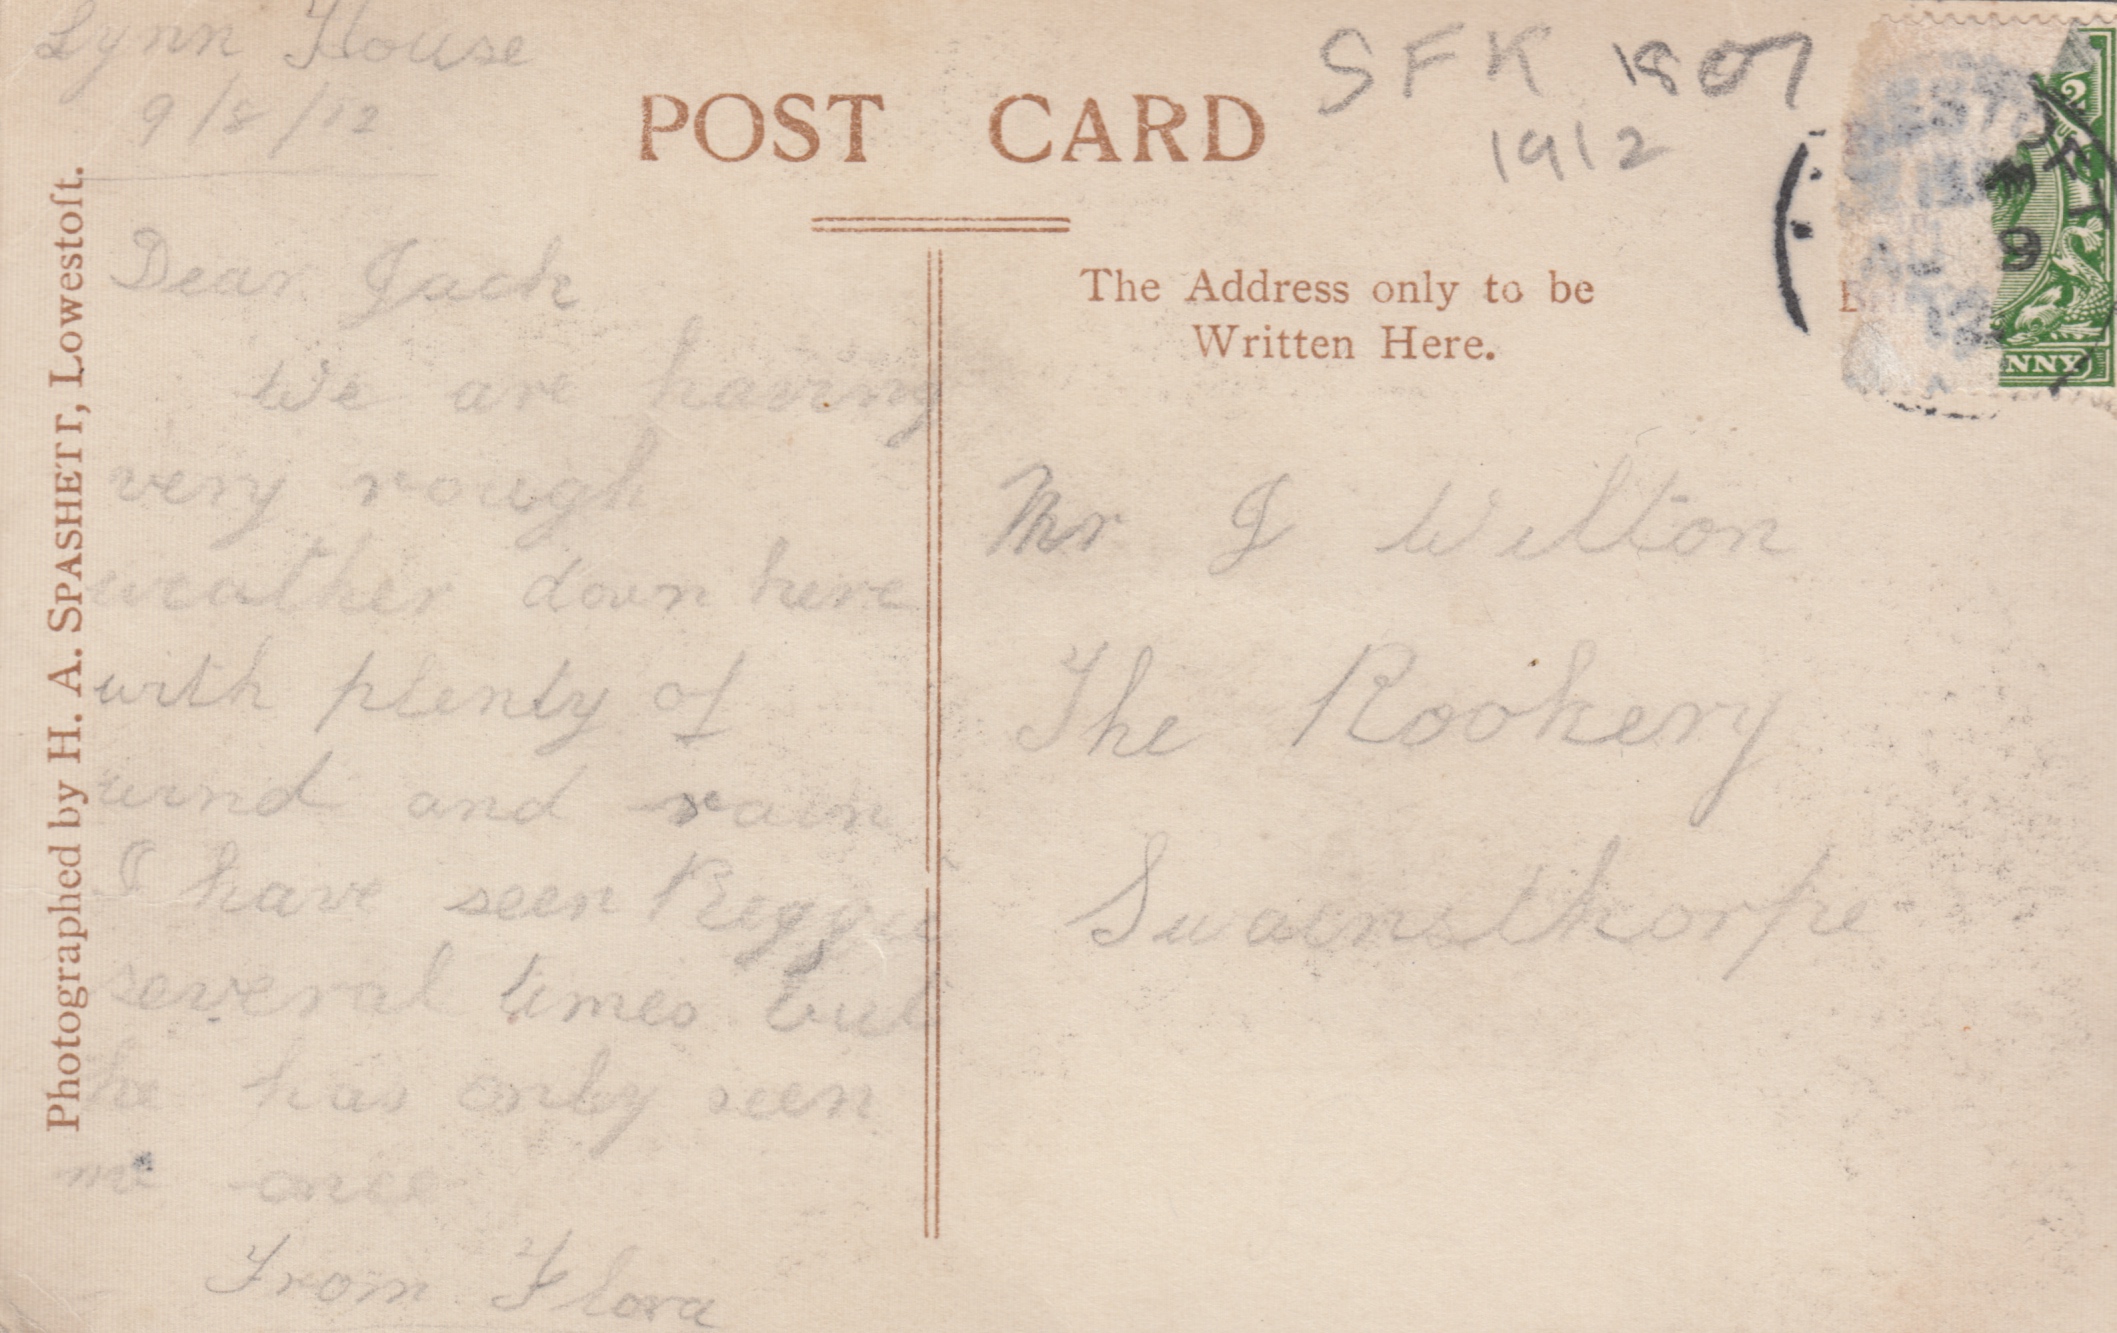 Lynn House
9/8/12
POST CARD
SFK 1807
1912
Photographed by H. A. SPASHETT, Lowestoft.
Dear Jack
We are having
very rough
weather down here
with plenty of
wind and rain
I have seen Reggie
several times but
he has only seen
me once
From Flora
The Address only to be
Written Here.
Mr J Wilton
The Rookery
Swainsthorpe
NNY